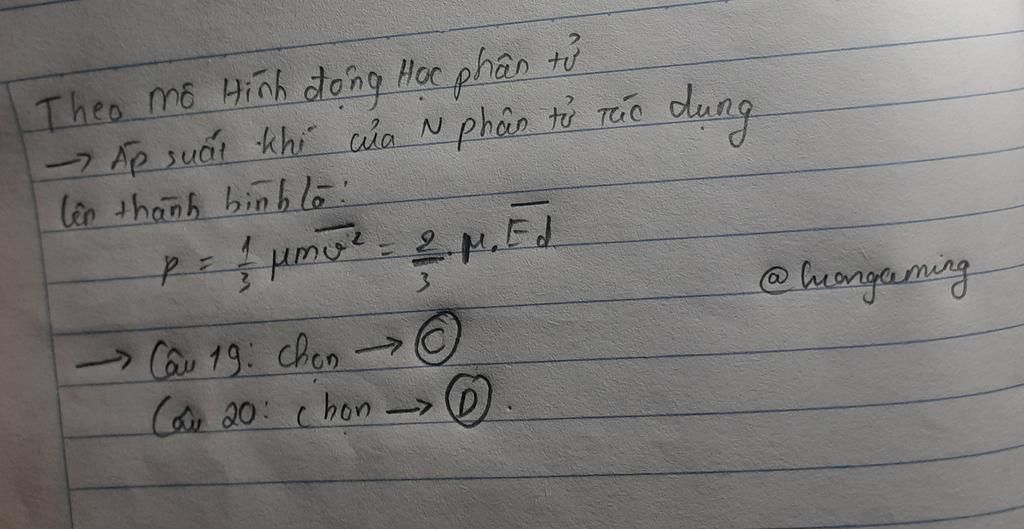 Theo mô Hình động Học phân tử
→ Áp suất khí của N phân tử tác dụng
lên thành bình là:
p = 1/3 μm\overline{v²} = 2/3 . μ. \overline{Eđ}
@huongaming
→ Câu 19: chọn → C
Câu 20: chọn → D.